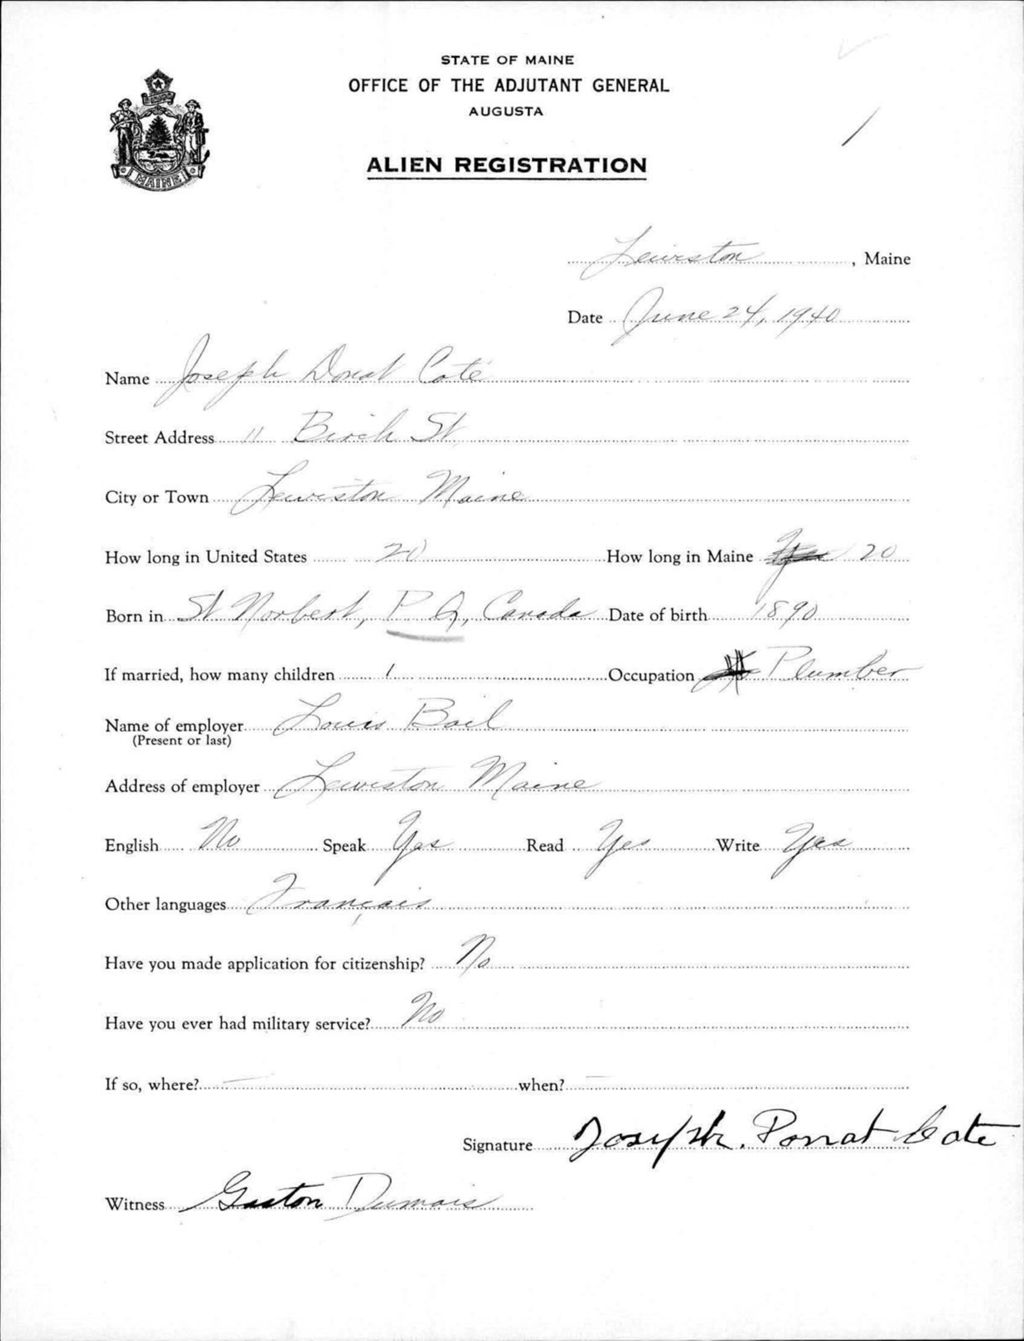 STATE OF MAINE
OFFICE OF THE ADJUTANT GENERAL
AUGUSTA
ALIEN REGISTRATION
MAINE
Lewiston, Maine
Date June 24, 1940
Name Joseph Donat Coté
Street Address 11 Birch St
City or Town Lewiston Maine
How long in United States 20 How long in Maine 20
Born in St Norbert, P Q, Canada Date of birth 1890
If married, how many children 1 Occupation Plumber
Name of employer Louis Bail
(Present or last)
Address of employer Lewiston Maine
English No Speak Yes Read Yes Write Yes
Other languages Français
Have you made application for citizenship? No
Have you ever had military service? No
If so, where? — when? —
Signature Joseph. Donat Cote
Witness Gaston Dumais